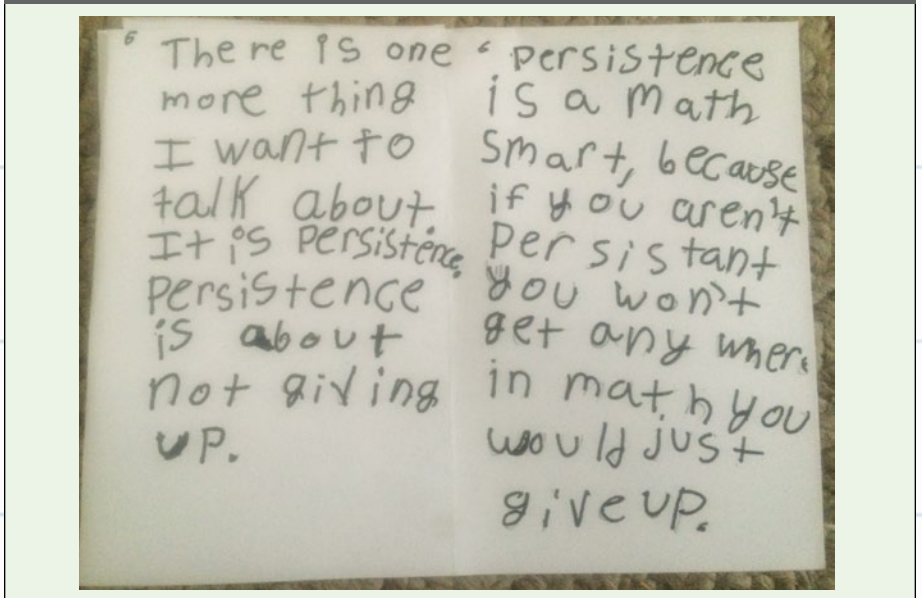 5
There is one
more thing
I want to
talk about.
It is persistence.
Persistence
is about
not giving
up.
6
Persistence
is a math
smart, because
if you aren't
persistant
you won't
get any where
in math you
would just
give up.